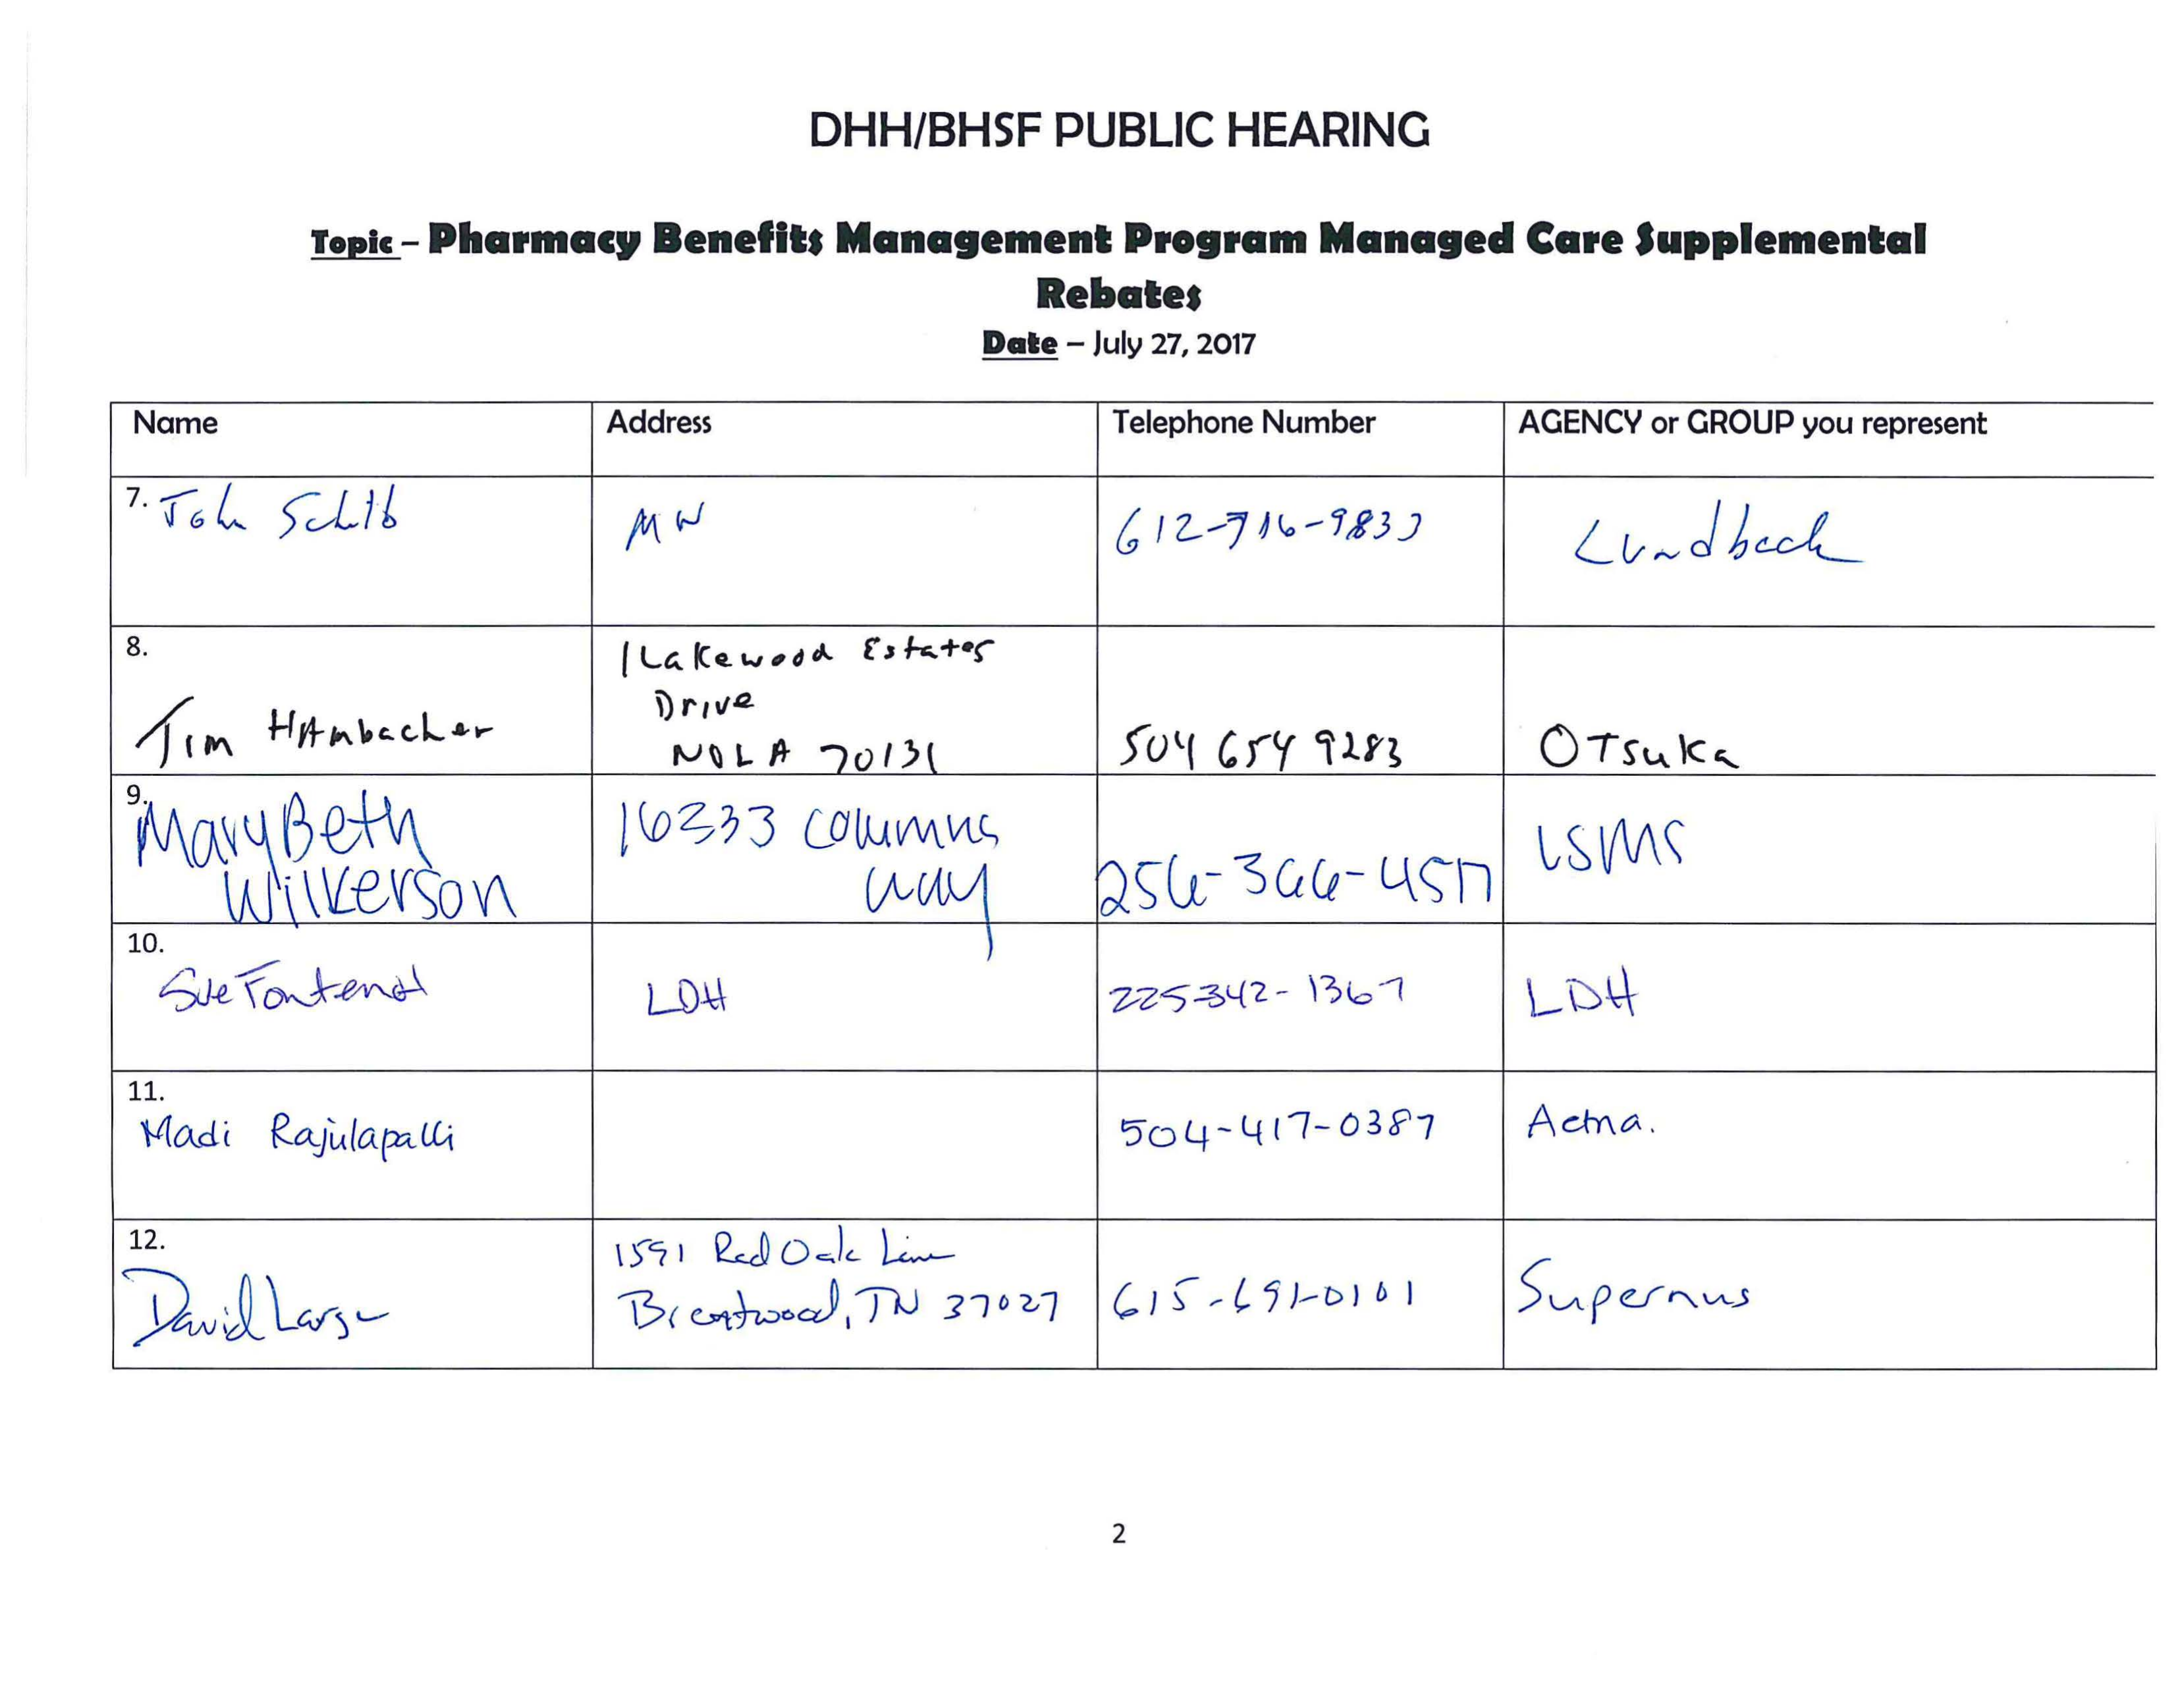 DHH/BHSF PUBLIC HEARING
Topic – Pharmacy Benefits Management Program Managed Care Supplemental
Rebates
Date – July 27, 2017
Name Address Telephone Number AGENCY or GROUP you represent
7. John MN 612-716-9833 Lundbeck
8.
Tim HAmbacher
1 Lakewood Estates
Drive
NOLA 70131
504 654 9283
OTsuka
9.
MaryBeth
Wilkerson
16233 Columns
Way
LSMS
10.
Sue Fontenot LDH 225-342-1367 LDH
11.
Madi Rajulapalli 504-417-0387 Aetna.
12.
David Large
1591 Red Oak Lane
Brentwood, TN 37027
615-691-0101
Supernus
2